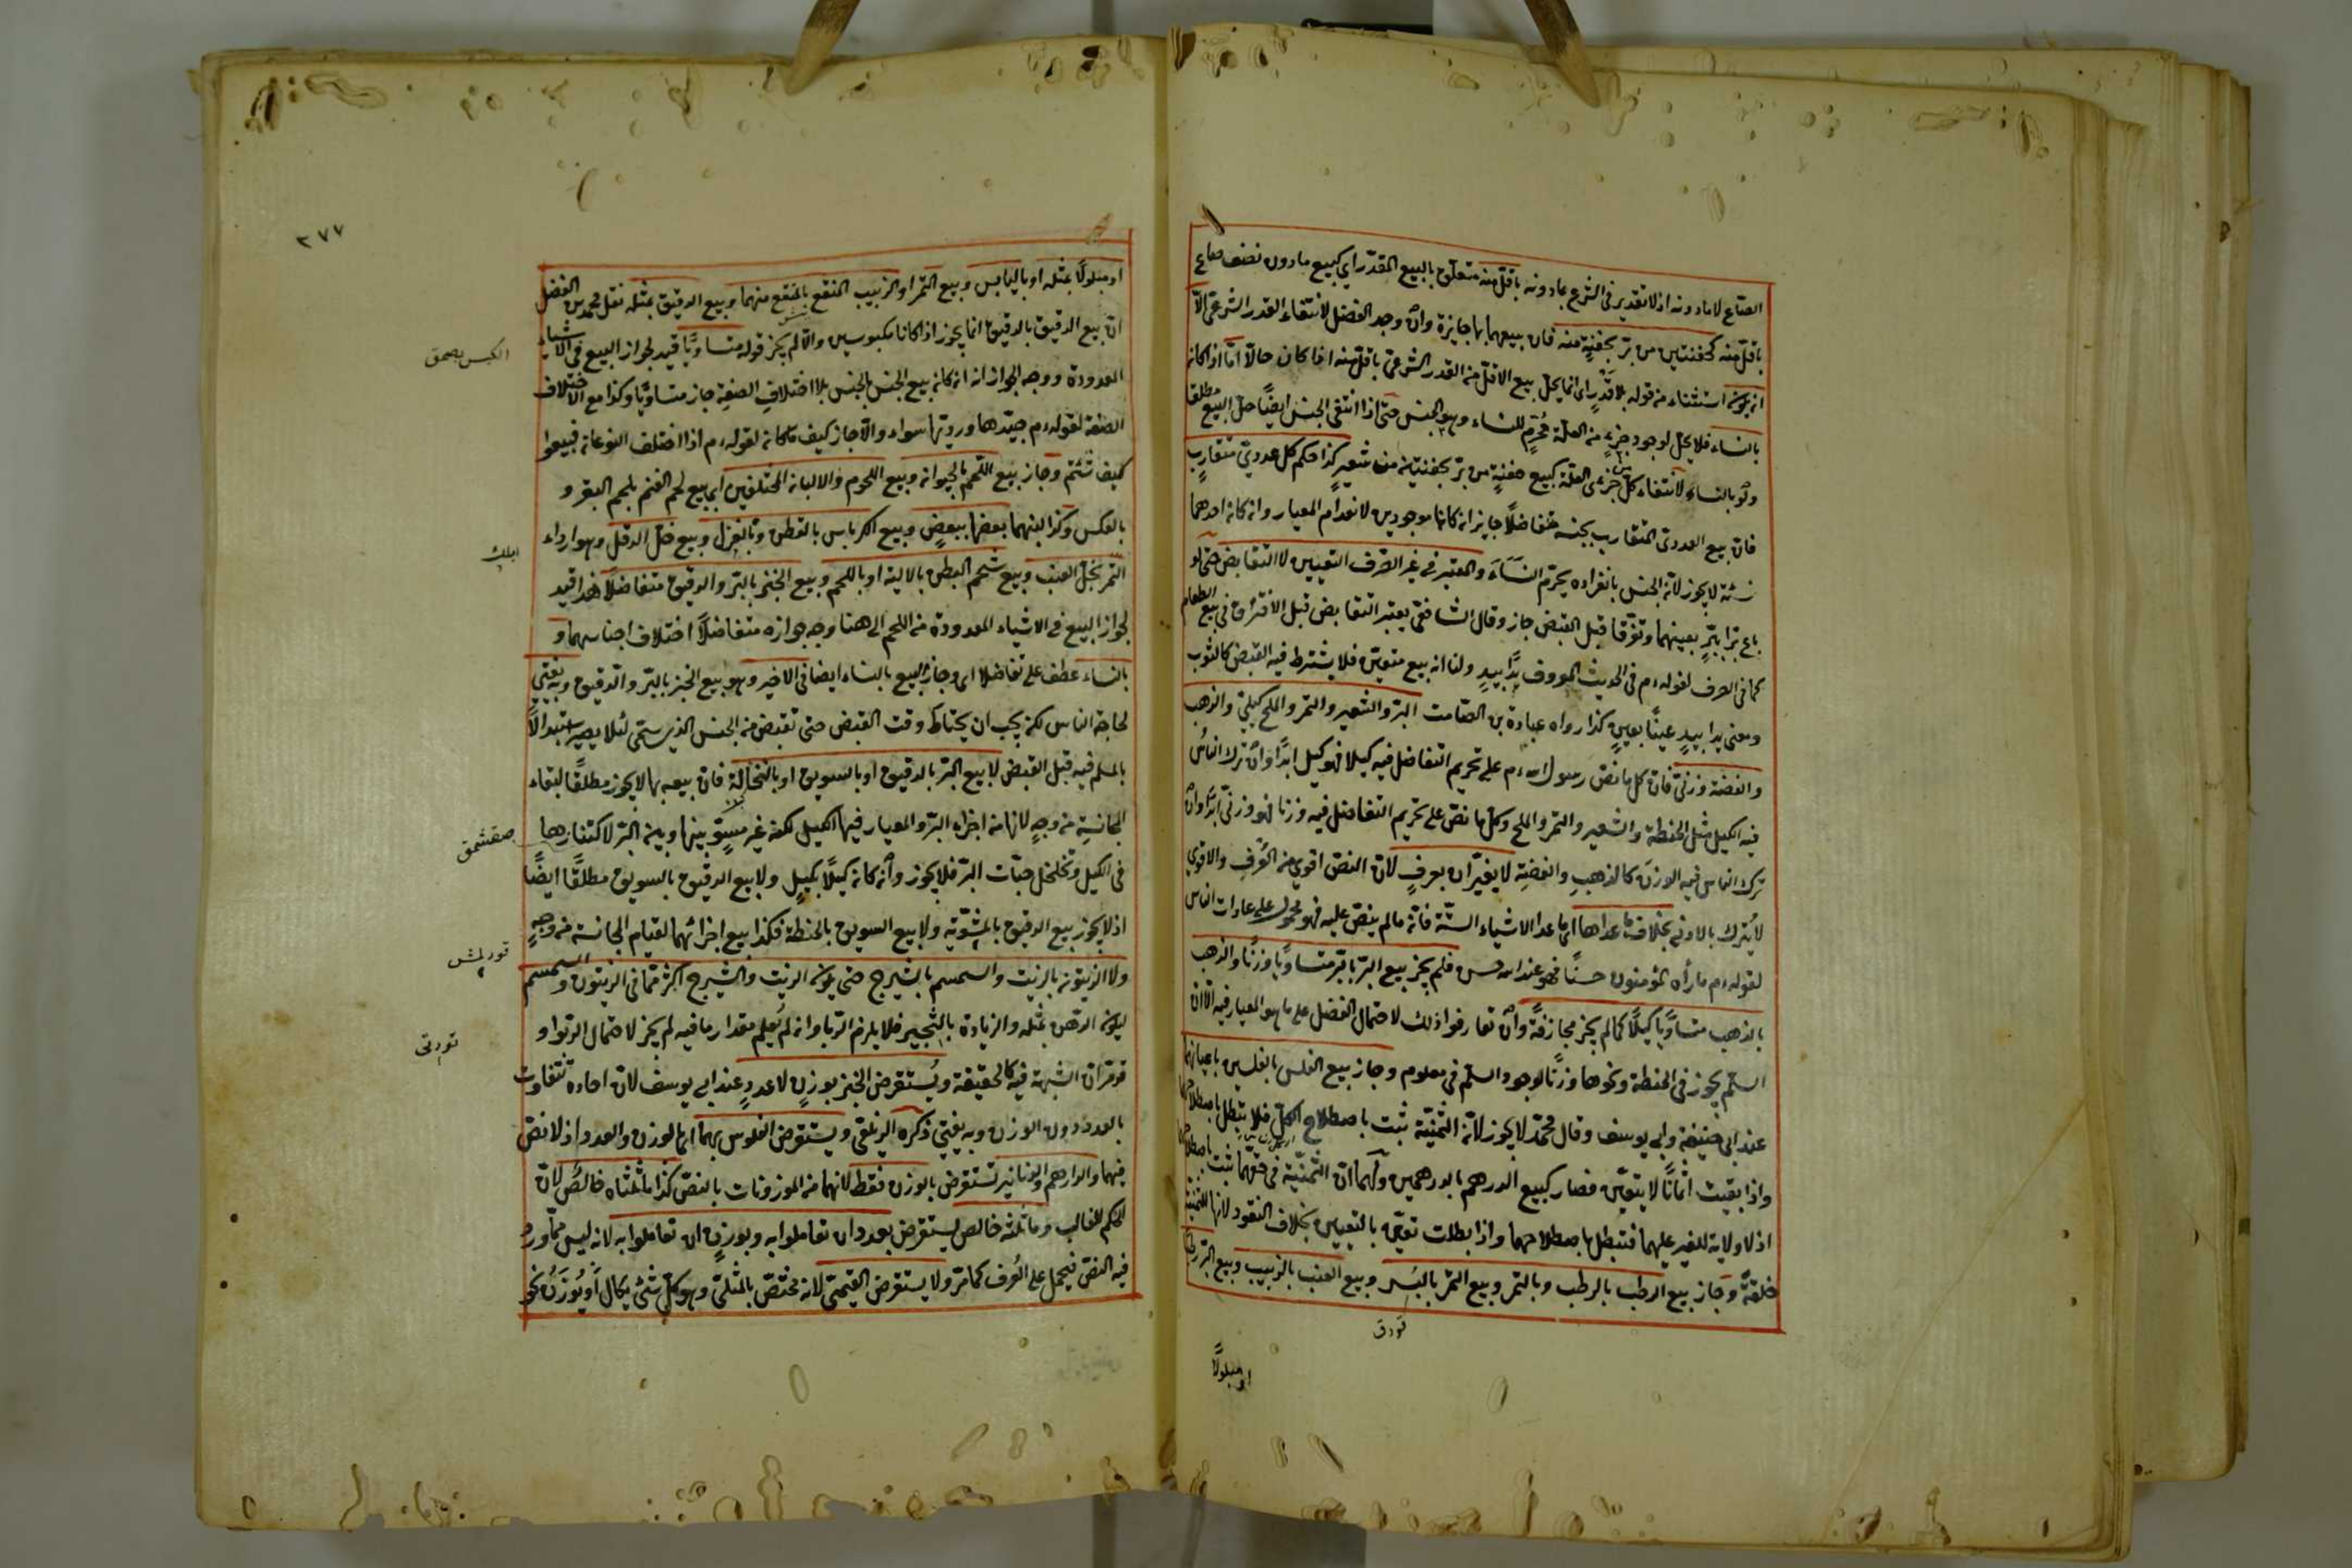 الصاع لا مادونه اذ لا تقدير فى الشرع بمادونه باقل منه متعلق بالبيع المقدر اى كبيع مادون نصف صاع
باقل منه كحفنتين من بر بحفنة منه فان بيعهما بها جايزة وان وجد الفضل لانتفاء القدر الشرعى الا
انه يكون استثناء من قوله بلا قدر اى انما يحل بيع الاقل من القدر الشرعى باقل منه اذا كان حالا اما اذا كان
بالنساء فلا يحل لوجود جزء من العلة محرم للنساء وهو الجنس حتى اذا انتفى الجنس ايضا حل البيع مطلقا
ولو بالنساء لانتفاء كل جزئى العلة كبيع حفنة من بر بحفنتين من شعير كذا حكم كل عددى متقارب
فان بيع العددى المتقارب بجنسه متفاضلا جايز ان كانا موجودين لانعدام المعيار وان كان احدهما
نسئة لا يجوز لان الجنس بانفراده يحرم النساء والمعتبر فى غير الصرف التعيين لا التقابض حتى لو
باع برا ببر بعينهما وتفرقا قبل القبض جاز وقال الشافعى يعتبر التقابض قبل الافتراق فى بيع الطعام
كما فى الصرف لقوله م فى الحديث المعروف يدا بيد ولنا انه بيع متعين فلا يشترط فيه القبض كالثوب
ومعنى يدا بيد عينا بعين كذا رواه عبادة بن الصامت البر والشعير والتمر والملح كيلى والذهب
والفضة وزنى فان كل ما نص رسول الله م على تحريم التفاضل فيه كيلا فهو كيل ابدا وان ترك الناس
فيه الكيل مثل الحنطة والشعير والتمر والملح وكل ما نص على تحريم التفاضل فيه وزنا فهو وزنى ابدا وان
ترك الناس فيه الوزن كالذهب والفضة لا يغيران بعرف لان النص اقوى من العرف والاقوى
لا يترك بالادنى بخلاف ما عداها اى ما عدا الاشياء الستة فانه ما لم ينص عليه فهو محمول على عادات الناس
لقوله م ما رآه المؤمنون حسنا فهو عند الله حسن فلم يجز بيع البر بالبر متساويا وزنا والذهب
بالذهب متساويا كيلا كما لم يجز مجازفة وان تعارفوا ذلك لاحتمال الفضل على ما هو المعيار فيه الا ان
السلم يجوز فى الحنطة ونحوها وزنا لوجود السلم فى معلوم وجاز بيع الفلس بالفلسين باعيانهما
عند ابى حنيفة وابى يوسف وقال محمد لا يجوز لان الثمنية تثبت باصطلاح الكل فلا تبطل باصطلاحهما
واذا بقيت اثمانا لا يتعين فصار كبيع الدرهم بالدرهمين ولهما ان الثمنية فى حقهما تثبت باصطلاحهما
اذ لا ولاية للغير عليهما فتبطل باصطلاحهما واذا بطلت تعين بالتعيين بخلاف النقود لانها للثمنية
خلقة وجاز بيع الرطب بالرطب وبالتمر وبيع التمر بالبسر وبيع العنب بالزبيب وبيع البر رطبا
قورق
او مبلولا
٢٧٧
او مبلولا بمثله او باليابس وبيع التمر او الزبيب المنقع بالمنقع منهما وبيع الدقيق بمثله نقل محمد بن الفضل
ان بيع الدقيق بالدقيق انما يجوز اذا كانا مكبوسين والا لم يجز قوله متساويا قيد لجواز البيع فى الاشياء
الكبس بصمق
المعدودة ووجه الجواز انه ان كان بيع الجنس بالجنس بلا اختلاف الصفة جاز متساويا وكذا مع اختلاف
الصفة لقوله م جيدها ورديها سواء والا جاز كيف ما كان لقوله م اذا اختلف النوعان فبيعوا
كيف شئتم وجاز بيع اللحم بالحيوان وبيع اللحوم والالبان المختلفين اى بيع لحم الغنم بلحم البقر و
بالعكس وكذا لبنهما بعضها ببعض وبيع الكرباس بالقطن وبالغزل وبيع خل الدقل وهو ارداء
ايلك
التمر بخل العنب وبيع شحم البطن بالالية او باللحم وبيع الخبز بالبر والدقيق متفاضلا هذا قيد
لجواز البيع فى الاشياء المعدودة من اللحم الى هنا وجه جوازه متفاضلا اختلاف اجناسهما و
بالنساء عطف على تفاضلا اى وجاز البيع بالنساء ايضا فى الاخير وهو بيع الخبز بالبر والدقيق وبه يفتى
لحاجة الناس لكن يجب ان يحتاط وقت القبض حتى تقبض من الجنس الذى سمى لئلا يصير استبدالا
بالمسلم فيه قبل القبض لا بيع البر بالدقيق او بالسويق او بالنخالة فان بيعه بها لا يجوز مطلقا لبقاء
المجانسة من وجه لانها من اجزاء البر والمعيار فيها الكيل لكنه غير مستو بينها وبين البر لاكتنازها
صقشمق
فى الكيل وتخلخل حبات البر فلا يجوز وان كان كيلا بكيل ولا بيع الدقيق بالسويق مطلقا ايضا
اذ لا يجوز بيع الدقيق بالمشوية ولا بيع السويق بالحنطة فكذا بيع اجزائهما لقيام المجانسة من وجه
قورلمش
ولا الزيتون بالزيت والسمسم بالشيرج حتى يكون الزيت والشيرج اكثر مما فى الزيتون والسمسم
ليكون الدهن بمثله والزيادة بالثجير فلا يلزم الربا وان لم يعلم مقدار ما فيه لم يجز لاحتمال الربوا و
تورتى
قد مر ان الشبهة فيه كالحقيقة ويستقرض الخبز بوزن لا عدد عند ابى يوسف لان احاده تتفاوت
بالعدد دون الوزن وبه يفتى ذكره الزيلعى ويستقرض الفلوس بهما اى بالوزن والعدد اذ لا نص
فيهما والدراهم والدنانير تستقرض بالوزن فقط لانهما من الموزونات بالنص كذا ما ثلثاه خالص لان
الحكم للغالب وما ثلثه خالص يستقرض بعدد ان تعاملوا به وبوزن ان تعاملوا به لانه ليس مما ورد
فيه النص فيحمل على العرف كما مر ولا يستقرض القيمى لانه مختص بالمثلى وهو كل شئ يكال او يوزن نحو